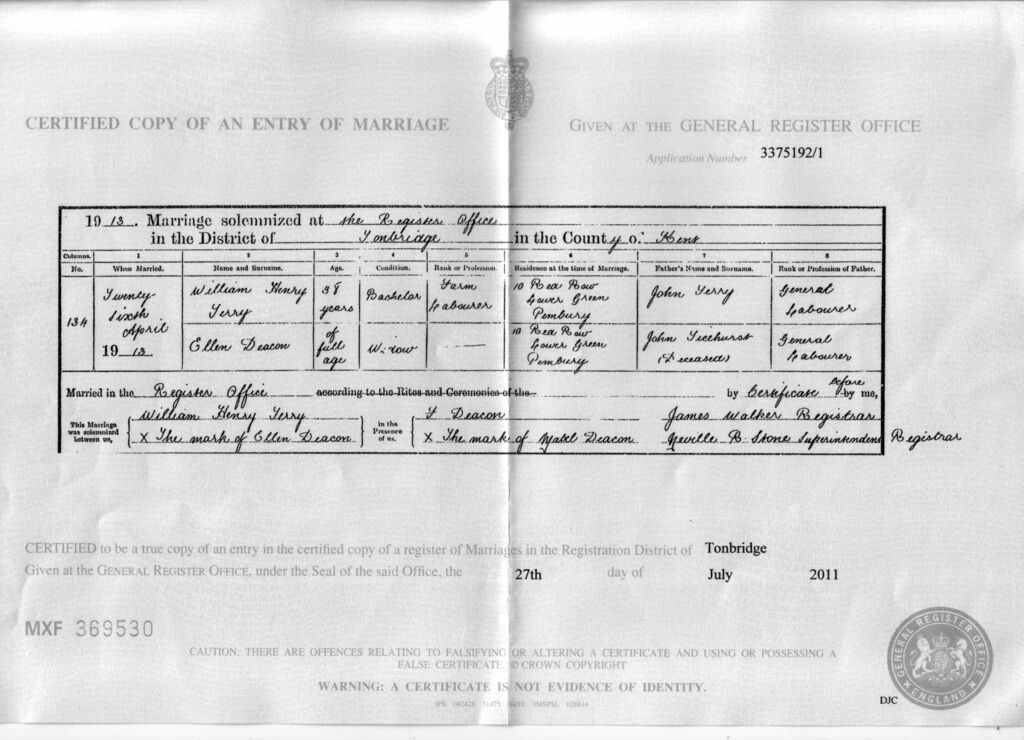 CERTIFIED COPY OF AN ENTRY OF MARRIAGE
GIVEN AT THE GENERAL REGISTER OFFICE
Application Number 3375192/1
1913. Marriage solemnized at the Register Office
in the District of Tonbridge in the County of Kent
Columns. 1 2 3 4 5 6 7 8
No. When Married. Name and Surname. Age. Condition. Rank or Profession. Residence at the time of Marriage. Father's Name and Surname. Rank or Profession of Father.
134
Twenty
Sixth
April
1913
William Henry
Terry
38
years
Bachelor
Farm
Labourer
10 Rea Row
Lower Green
Pembury
John Terry
General
Labourer
Ellen Deacon
of
full
age
Widow
10 Rea Row
Lower Green
Pembury
John Ticehurst
(Deceased)
General
Labourer
Married in the Register Office according to the Rites and Ceremonies of the by Certificate before by me,
This Marriage
was solemnized
between us,
William Henry Terry
X The mark of Ellen Deacon
in the
Presence
of us.
F Deacon
X The mark of Deacon
James Walker Registrar
Neville B. Stone Superintendent Registrar
CERTIFIED to be a true copy of an entry in the certified copy of a register of Marriages in the Registration District of Tonbridge
Given at the GENERAL REGISTER OFFICE, under the Seal of the said Office, the 27th day of July 2011
MXF 369530
CAUTION: THERE ARE OFFENCES RELATING TO FALSIFYING OR ALTERING A CERTIFICATE AND USING OR POSSESSING A
FALSE CERTIFICATE © CROWN COPYRIGHT
WARNING: A CERTIFICATE IS NOT EVIDENCE OF IDENTITY.
GENERAL REGISTER OFFICE
ENGLAND
DJC